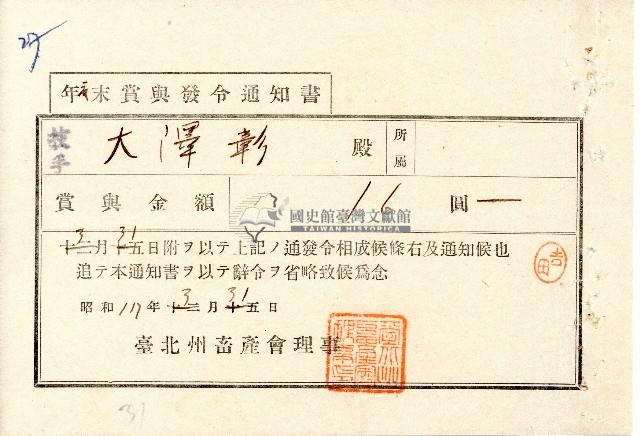 27
年度末賞與發令通知書
技手 大澤彰 殿 所屬
賞與金額 16圓一
國史館臺灣文獻館
TAIWAN HISTORICA
3月31日附ヲ以テ上記ノ通發令相成候條右及通知候也
追テ本通知書ヲ以テ辭令ヲ省略致候爲念
昭和17年3月31日
臺北州畜產會理事
吉田
31